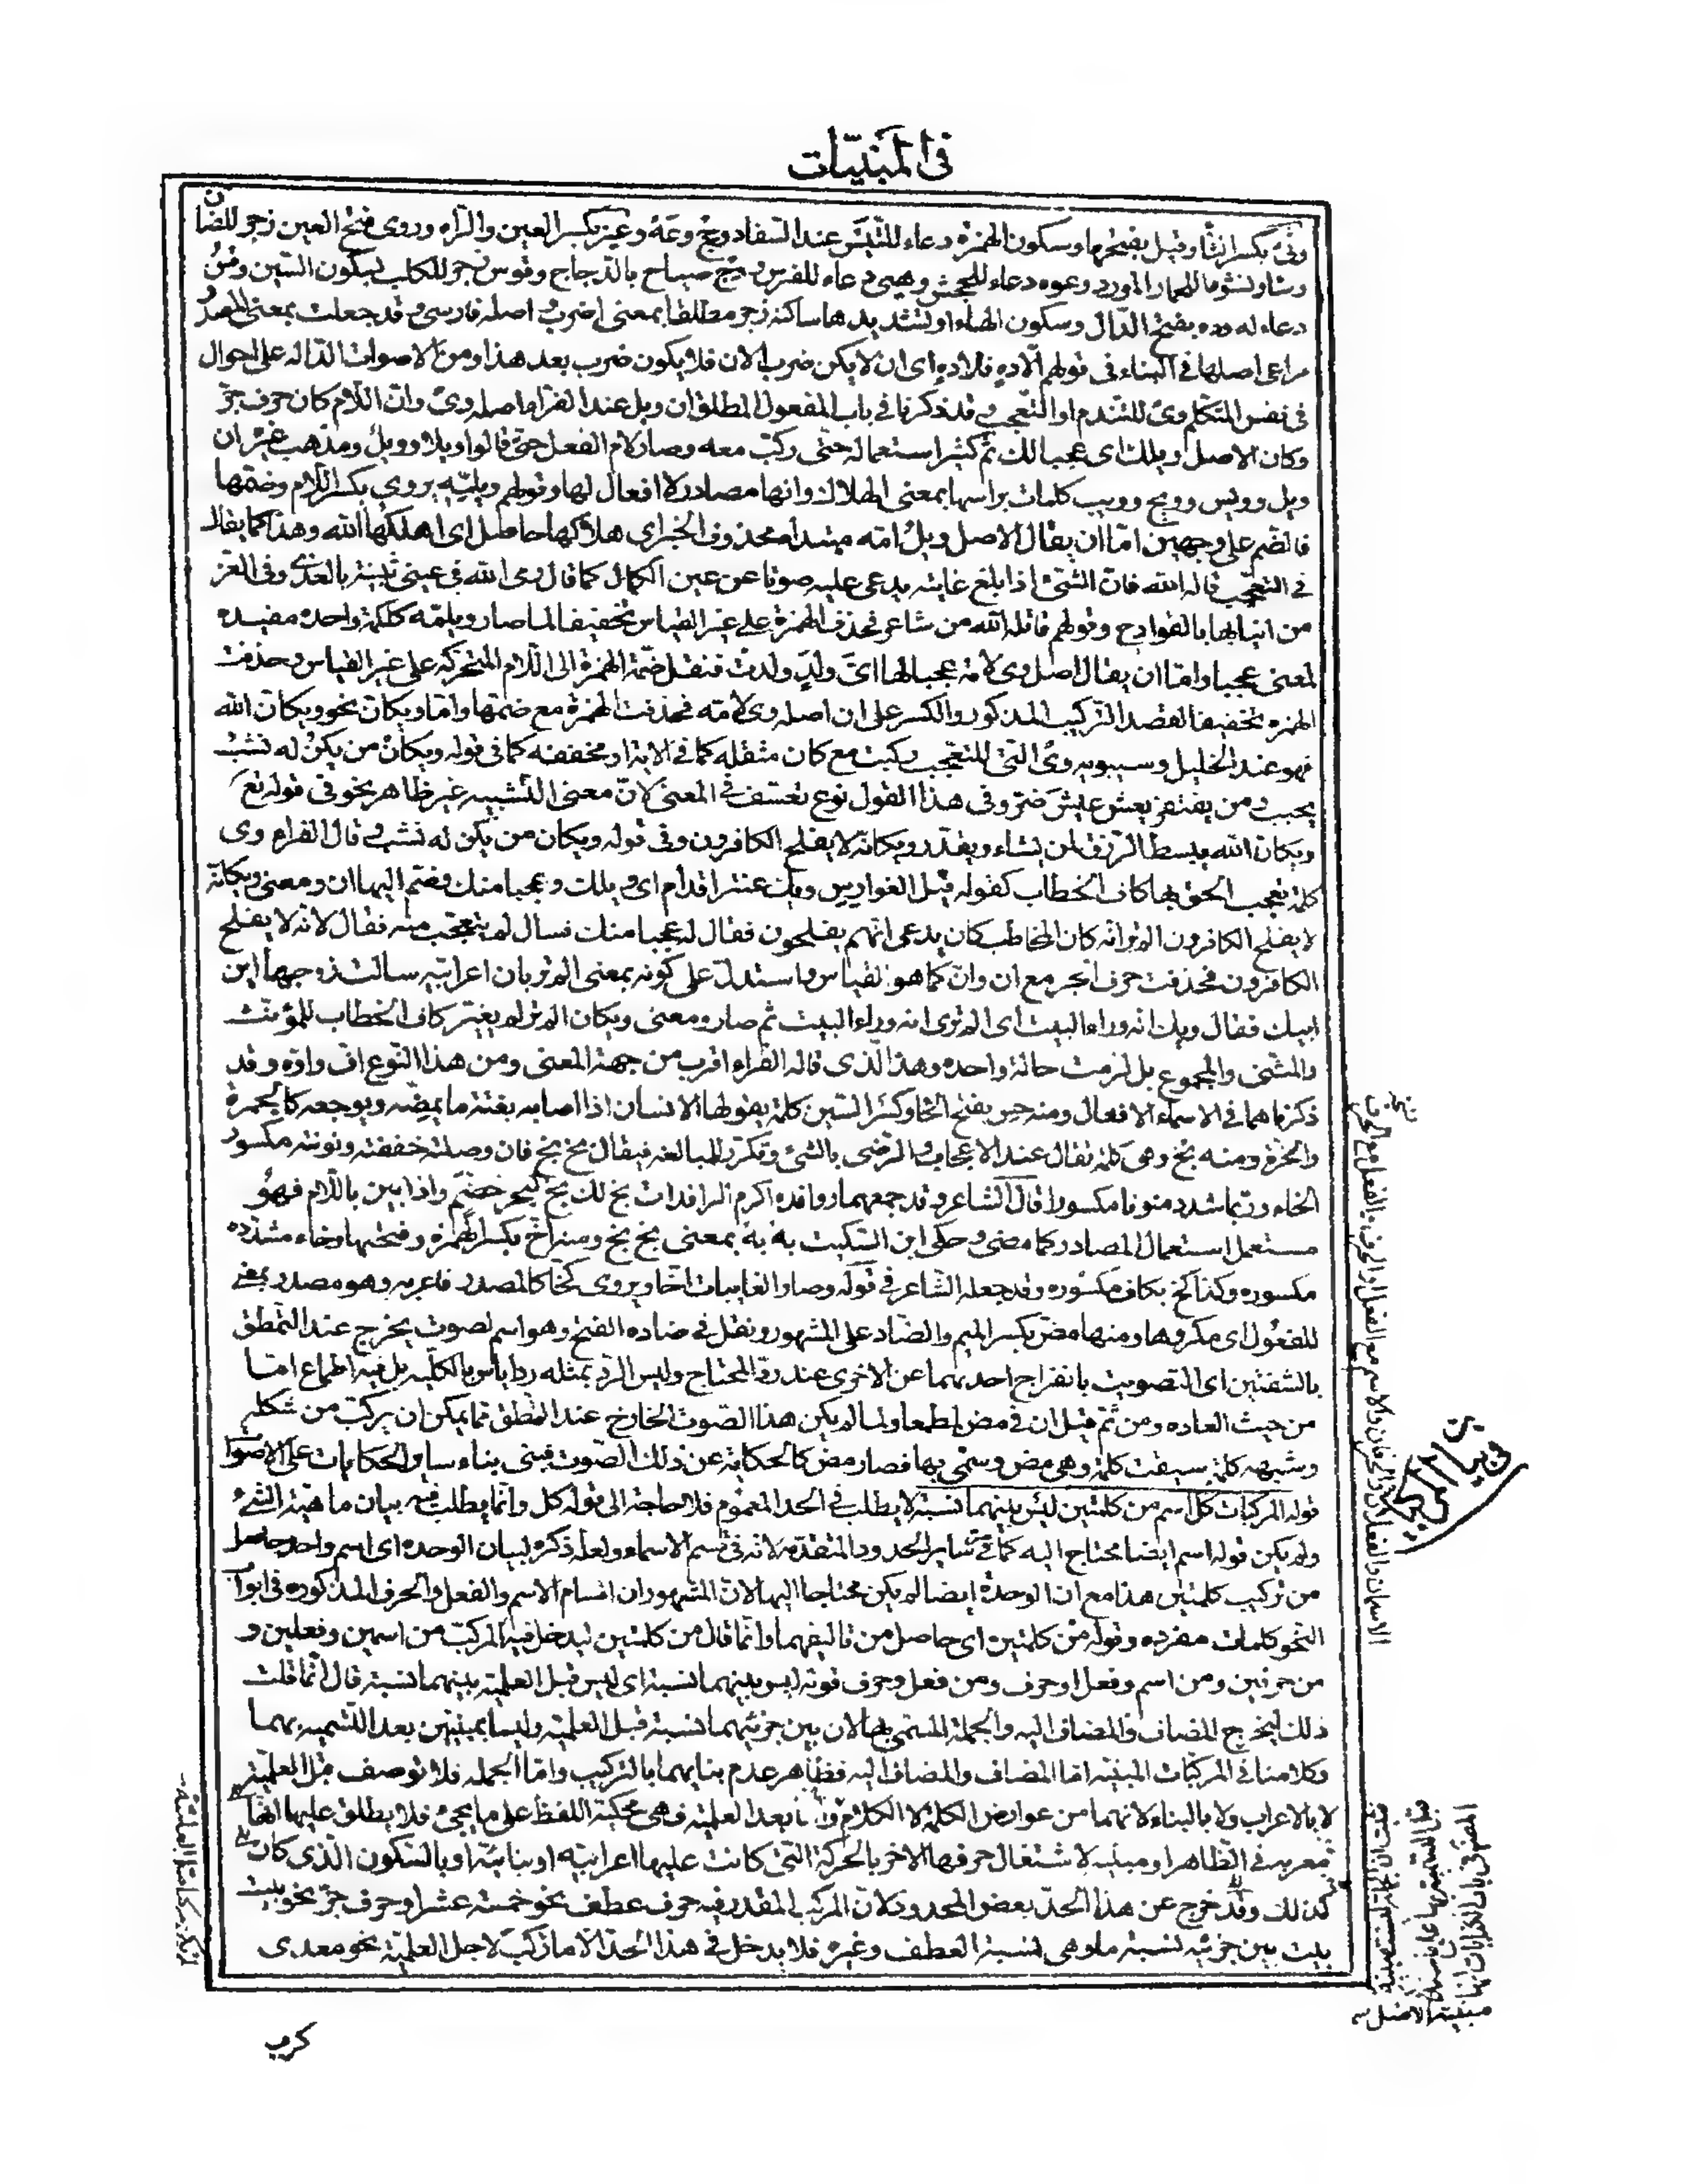 فى المبنيّات
وثئ بكسر الثا وقيل بفتحها وسكون الهمزة دعاء للتيس عند السفاد وحج وعه وعيز بكسر العين والزاء وروى فتح العين زجر للضان
وشاء وتشوء للحمار المورد وعوه دعاء للجحش وهيى دعاء للفرس ودج صياح بالدجاج وقوس زجر للكلب بسكون السين
دعاء له وده بفتح الدال وسكون الهاء او تشديدها ساكنة زجر مطلقا بمعنى اضرب اصله فارسى وقد جعلت بمعنى المصدر
مراعى اصلها فى البناء فى قولهم الّا ده فلا ده اى ان لا يكن ضرب الان فلا يكون ضرب بعد هذا ومن الاصوات الدالة على احوال
فى نفس المتكلم وى للتندم او التعجب وقد ذكرنا فى باب المفعول المطلق ان ويل عند الفراء اصله وى وان اللام كان حرف جرّ
وكان الاصل وى لك اى عجبا لك ثم كثر استعماله حتى ركب معه وصار لام الفعل حتى قالوا ويلا وويل ومذهب غيره ان
ويل وويس وويح وويب كلمات براسها بمعنى الهلاك وانها مصادر لا افعال لها وقولهم ويلمّه يروى بكسر اللام وضمها
فالضم على وجهين امّا ان يقال الاصل ويل امّه مبتدأ محذوف الخبر اى هلاكها حاصل اى اهلكها الله وهذا كما يقال
فى التعجب قاتله الله فان الشئ اذا بلغ غايته يدعى عليه صونا عن عين الكمال كما قال رمى الله فى عينى بثينة بالقذى وفى الغر
من انيابها بالقوادح وقولهم قاتله الله من شاعر فحذف الهمزة على غير القياس تخفيفا لما صار ويلمّه ككلمة واحدة مفيدة
لمعنى عجبا وامّا ان يقال اصله وى لامّه عجبا لها اىّ ولد ولدت فنقل ضمة الهمزة الى اللام المتحركة على غير القياس وحذفت
الهمزة تخفيفا لقصد التركيب المذكور والكسر على ان اصله وى لامّه فحذفت الهمزة مع ضمتها وامّا ويكان نحو ويكان الله
فهو عند الخليل وسيبويه وى التى للتعجب ركبت مع كان مثقلة كما فى الاية او مخففة كما فى قوله ويكان من يكن له نشب
يحبب ومن يفتقر يعش عيش ضرّ وفى هذا القول نوع تعسف فى المعنى لان معنى التشبيه غير ظاهر نحو فى قوله تع
ويكان الله يبسط الرزق لمن يشاء ويقدر ويكانه لا يفلح الكافرون وفى قوله ويكان من يكن له نشب وقال الفراء وى
كلمة تعجب الحق بها كاف الخطاب كقوله قيل الفوارس ويك عنتر اقدم اى ويلك وعجبا منك وضم اليها ان ومعنى ويكانه
لا يفلح الكافرون الم تر انه كان المخاطب كان يدعى انهم يفلحون فقال له عجبا منك فسال لم يتعجب منه فقال لانه لا يفلح
الكافرون فحذفت حرف الجر مع ان وانّ كما هو القياس واستدل على كونه بمعنى الم تر بان اعرابية سالت زوجها اين
ابنك فقال ويك انه وراء البيت اى الم ترى انه وراء البيت ثم صار معنى ويكان الم تر لم يغير كاف الخطاب للمؤنث
والمثنى والمجموع بل لزمت حالة واحدة وهذا الذى قاله الفراء اقرب من جهة المعنى ومن هذا النوع اف واوه وقد
ذكرناهما فى الاسماء الافعال ومنه حس بفتح الحاء وكسر السين كلمة يقولها الانسان اذا اصابه بغتة ما يمضّه ويوجعه كالجمرة
والحزّة ومنه بخ وهى كلمة تقال عند الاعجاب والرضى بالشئ وتكرر للمبالغة فيقال بخ بخ فان وصلته خففته ونونته مكسور
الخاء وربما شدد منونا مكسورا قال الشاعر وقد جمعهما روافده اكرم الرافدات بخ لك بخ لبحر خضم واذا بين باللام فهو
مستعمل استعمال المصادر كما مضى وحكى ابن السكيت به به بمعنى بخ بخ ومنه اخ بكسر الهمزة وفتحها وخاء مشددة
مكسورة وكذا كخ بكاف مكسورة وقد جعله الشاعر فى قوله وصار الغانيات اخّا ويروى كخّا كالمصدر فاعربه وهو مصدر بمعنى
المفعول اى مكروها ومنها مض بكسر الميم والضاد على المشهور ونقل فى ضاده الفتح وهو اسم لصوت يخرج عند التمطق
بالشفتين اى التصويت بانفراج احديهما عن الاخرى عند ردّ المحتاج وليس الرد بمثله رد اياس بالكلية بل فيه اطماع امّا
من حيث العادة ومن ثم قيل ان فى مض لمطمعا ولما لم يكن هذا الصوت الخارج عند التمطق مما يمكن ان يركب من شكله
وشبهه كلمة سيقت كلمة وهى مض وسمى بها فصار مض كالحكاية عن ذلك الصوت فبنى بناء ساير الحكايات على الاصوا
قوله المركبات كل اسم من كلمتين ليس بينهما نسبة لا يطلب فى الحد العموم فلا حاجة الى قوله كل وانّما يطلب فيه بيان ماهية الشئ
ولم يكن قوله اسم ايضا محتاجا اليه كما فى ساير الحدود المتقدمة لانه فى قسم الاسماء ولعله ذكره لبيان الوحدة اى اسم واحد حاصل
من تركيب كلمتين هذا مع ان الوحدة ايضا لم يكن محتاجا اليها لان المشهور ان اقسام الاسم والفعل والحرف المذكورة فى ابواب
النحو كلمات مفردة وقوله من كلمتين اى حاصل من تاليفهما وانّما قال من كلمتين ليدخل فيه المركب من اسمين وفعلين و
من حرفين ومن اسم وفعل او حرف ومن فعل وحرف قوله ليس بينهما نسبة اى ليس قبل العلمية بينهما نسبة قال انّما قلت
ذلك ليخرج المضاف والمضاف اليه والجملة المسمى بها لان بين جزئيهما نسبة قبل العلمية وليسا بمبنيين بعد التسمية بهما
وكلامنا فى المركبات المبنية امّا المضاف والمضاف اليه فظاهر عدم بنائهما بالتركيب وامّا الجملة فلا توصف قبل العلمية
لا بالاعراب ولا بالبناء لانهما من عوارض الكلمة لا الكلام وامّا بعد العلمية فهى محكية اللفظ على ما يجئ فلا يطلق عليها انها
معربة فى الظاهر او مبنية لاشتغال حرفها الاخر بالحركة التى كانت عليها اعرابية او بنائية او بالسكون الذى كان
كذلك وقد خرج عن هذا الحدّ بعض المحدود لان المركب المقدر فيه حرف عطف نحو خمسة عشر او حرف جرّ نحو بيت
بيت بين جزئيه نسبة ما وهى نسبة العطف وغيره فلا يدخل فى هذا الحدّ الا ما ركب لاجل العلمية نحو معدى
كرب
الاسمان والفعلان والحرفان والاسم مع الفعل او الحرف والفعل مع الحرف
مبنية الاصل